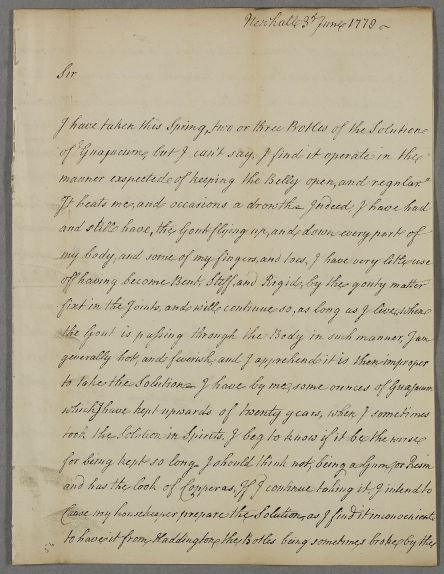 Newhall 3d June 1778
Sir
I have taken this Spring, two or three Botles of the Solution
of Guajacum, but I can't say, I find it operate in the
manner expected of keeping the Belly open, and regular.
It heats me, and occasions a drowth. Indeed I have had
and still have, the Gout flying up, and down every part of
my body, and some of my fingers, and toes, I have very litle use
off having become Bent, Stiff, and Rigid, by the gouty matter
fixt in the Joints, and will continue so, as long as I live, when
the Gout is passing through the Body in such manner, I am
generally hot, and feverish, and I apprehend it is then improper
to take the Solution. I have by me, some ounces of Guajacum
which I have kept upwards of twenty years, when I sometimes
took the Solution in Spirits. I beg to know if it be the worse
for being kept so long. I should think not, being a Gum, or Resin
and has the look of Copperas, If I continue taking it, I intend to
Cause my housekeeper prepare the Solution, as I find it inconvenient
to have it from Haddington, the Botles being sometimes broke, by the